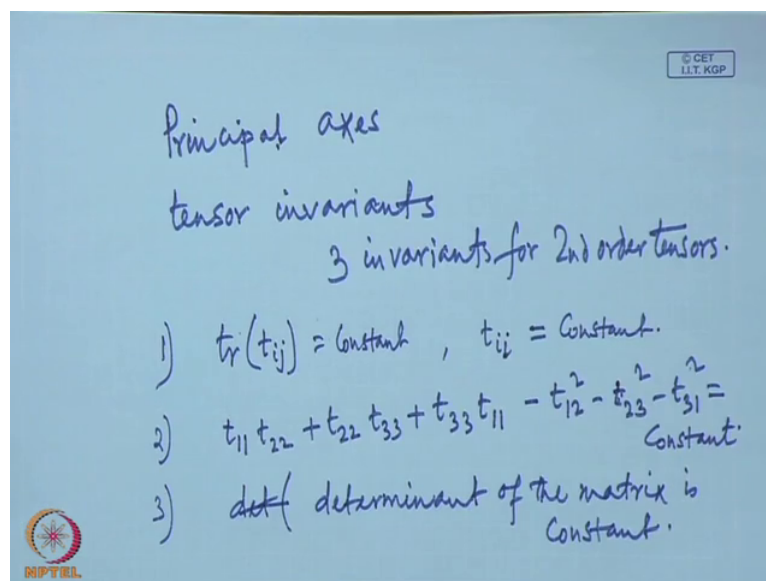 © CET
I.I.T. KGP
Principal axes
tensor invariants
3 invariants for 2nd order Tensors.
1) tr(tij) = Constant , tii = Constant.
2) t11 t22 + t22 t33 + t33 t11 - t12² - t23² - t31² =
Constant.
3) det( determinant of the matrix is
Constant.
NPTEL